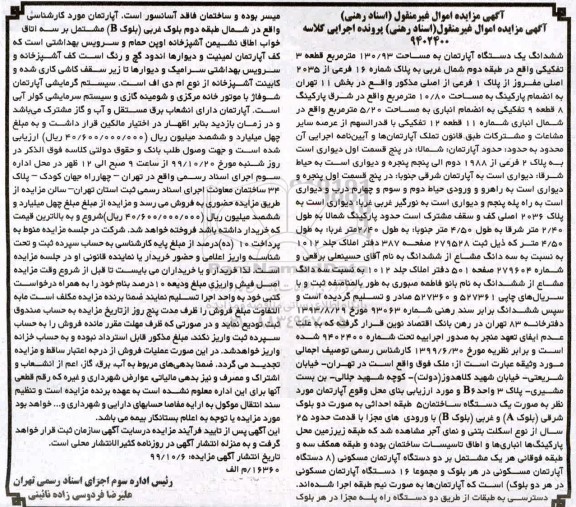 آگهی مزایده اموال غیرمنقول (اسناد رهنی)
آگهی مزایده اموال غیرمنقول(اسناد رهنی) پرونده اجرایی کلاسه
۹۴۰۲۴۰۰
ششدانگ یک دستگاه آپارتمان به مساحت ۱۳۰/۹۳ مترمربع قطعه ۳
تفکیکی واقع در طبقه دوم شمال غربی به پلاک شماره ۱۶ فرعی از ۲۰۳۵
اصلی مفروز از پلاک ۱ فرعی از اصلی مذکور واقع در بخش ۱۱ تهران
به انضمام پارکینگ به مساحت ۱۰/۸۰ متر مربع واقع در شرق پارکینگ
۸ قطعه ۹ تفکیکی به انضمام انباری به مساحت ۵/۲۰ مترمربع واقع در
شمال انباری شماره ۱۱ قطعه ۱۲ تفکیکی با قدرالسهم از عرصه سایر
مشاعات و مشترکات طبق قانون تملک آپارتمان‌ها و آیین‌نامه اجرایی آن
محدود به حدود: حدود آپارتمان: شمالا: در پنج قسمت اول دیواری است
به پلاک ۲ فرعی از ۱۹۸۸ دوم الی پنجم پنجره و دیواری است به حیاط
شرقا: دیواری است به آپارتمان شرقی جنوبا: در پنج قسمت اول پنجره و
دیواری است به راهرو و ورودی حیاط دوم و سوم و چهارم دیواری
است به راه پله پنجم و دیواری است به نورگیر غربی غربا: دیواری است به
پلاک ۲۰۳۶ اصلی کف و سقف مشترک است حدود پارکینگ شمالا به طول
۲/۴۰ متر شرقا به طول ۴/۵۰ متر جنوبا: به طول ۲/۴۰ متر غربا: به طول
۴/۵۰ متر که ذیل ثبت ۲۷۹۵۲۸ صفحه ۳۸۷ دفتر املاک جلد ۱۰۱۲
به نسبت به سه دانگ مشاع از ششدانگ به نام آقای حسینعلی برقعی و
شماره ۲۷۹۶۰۴ صفحه ۵۰۱ دفتر املاک جلد ۱۰۱۲ به نسبت سه دانگ
مشاع از ششدانگ به نام بانو فاطمه صبوری به طور بالمناصفه ثبت و با
سریال‌های چاپی ۵۲۷۳۶۱ و ۵۲۷۳۶۰ صادر و تسلیم گردیده است و
سپس ششدانگ برابر سند رهنی شماره ۹۳۰۶۳ مورخ ۱۳۹۳/۸/۲۹
دفترخانه ۸۳ تهران در رهن بانک اقتصاد نوین قرار گرفته که به علت
عدم ایفای تعهد منجر به صدور اجراییه تحت شماره ۹۴۰۲۴۰۰ شده
است و برابر نظریه مورخ ۱۳۹۹/۶/۳۰ کارشناس رسمی توصیف اجمالی
مورد وثیقه عبارت است از: ملک فوق واقع است در تهران- خیابان
شریعتی- خیابان شهید کلاهدوز(دولت)- کوچه شهید جلالی- بن بست
مشیری- پلاک ۳ واحد B۶ و مورد ارزیابی بنای محل وقوع آپارتمان مورد
نظر به صورت یک دستگاه ساختمان ۵ طبقه احداثی به صورت دو بلوک
شرقی (بلوک A) و غربی (بلوک B) با ورودی های مجزا با قدمت حدود ۲۵
سال از نوع اسکلت بتنی و نمای آجر مشاهده شد که طبقه زیرزمین محل
پارکینگ‌ها انباری‌ها و اتاق تاسیسات ساختمان بوده و طبقه همکف سه و
طبقه فوقانی هر یک مشتمل بر دو دستگاه آپارتمان مسکونی (۸ دستگاه
آپارتمان مسکونی در هر بلوک و مجموعا ۱۶ دستگاه آپارتمان مسکونی
در هر دو بلوک) است که آپارتمان‌ها به صورت نیم طبقه اجرا شده‌اند.
دسترسی به طبقات از طریق دو دستگاه راه پله مجزا در هر بلوک
میسر بوده و ساختمان فاقد آسانسور است. آپارتمان مورد کارشناسی
واقع در شمال طبقه دوم بلوک غربی (بلوک B) مشتمل بر سه اتاق
خواب اطاق نشیمن آشپزخانه اوپن حمام و سرویس بهداشتی است که
کف آپارتمان لمینیت و دیوارها اندود گچ و رنگ است کف آشپزخانه و
سرویس بهداشتی سرامیک و دیوارها تا زیر سقف کاشی کاری شده و
کابینت آشپزخانه از نوع ام دی اف است. سیستم گرمایشی آپارتمان
شوفاژ با موتور خانه مرکزی و شومینه گازی و سیستم سرمایشی کولر آبی
است. آپارتمان دارای انشعاب برق مستقل و آب و گاز مشترک می‌باشد
و در زمان بازدید بنابر اظهار در اختیار مالکین قرار داشت و به مبلغ
چهل میلیارد و ششصد میلیون ریال (۴۰/۶۰۰/۰۰۰/۰۰۰ ریال) ارزیابی
شده است و جهت وصول طلب بانک و حقوق دولتی کلاسه فوق الذکر در
روز شنبه مورخ ۹۹/۱۰/۲۰ از ساعت ۹ صبح الی ۱۲ ظهر در محل اداره
سوم اجرای اسناد رسمی واقع در تهران - چهارراه جهان کودک - پلاک
۳۴ ساختمان معاونت اجرای اسناد رسمی ثبت استان تهران- سالن مزایده از
طریق مزایده حضوری به فروش می رسد و مزایده از مبلغ مبلغ چهل میلیارد و
ششصد میلیون ریال (۴۰/۶۰۰/۰۰۰/۰۰۰ ریال)شروع و به بالاترین قیمت
که خریدار داشته باشد فروخته خواهد شد. شرکت در جلسه مزایده منوط به
پرداخت ۱۰ (ده)درصد از مبلغ پایه کارشناسی به حساب سپرده ثبت و تحت
شناسه واریز اعلامی و حضور خریدار یا نماینده قانونی او در جلسه مزایده
است. لذا خریدار و یا خریداران می بایست تا قبل از شروع وقت مزایده
اصل فیش واریزی مبلغ ودیعه ۱۰ درصد بنام خود را به همراه درخواست
کتبی خود به واحد اجرا تسلیم نمایند ضمنا برنده مزایده مکلف است مابه
التفاوت مبلغ فروش را ظرف مدت پنج روز ازتاریخ مزایده به حساب صندوق
ثبت تودیع نماید و در صورتی که ظرف مهلت مقرر مانده فروش را به حساب
سپرده ثبت واریز نکند، مبلغ مذکور قابل استرداد نبوده و به حساب خزانه
واریز خواهدشد. در این صورت عملیات فروش از درجه اعتبار ساقط و مزایده
تجدید می گردد. ضمنا بدهی‌های مربوط به آب، برق، گاز، اعم از انشعاب و
اشتراک و مصرف و نیز بدهی مالیاتی، عوارض شهرداری و غیره که رقم قطعی
آنها برای این اداره معلوم نشده است به عهده برنده مزایده است و تنظیم
سند انتقال موکول به ارایه مفاصا حسابهای دارایی و شهرداری و... خواهد بود
مورد مزایده با توجه به اعلام بستانکار بیمه می باشد.
این آگهی پس از تایید فرآیند مزایده درسایت آگهی سازمان ثبت قرار خواهد
گرفت و به منزله انتشار آگهی در روزنامه کثیرالانتشار محلی است.
تاریخ انتشار آگهی مزایده: ۹۹/۱۰/۶
۱۶۳۶۰/م الف
رئیس اداره سوم اجرای اسناد رسمی تهران
علیرضا فردوسی زاده نائینی